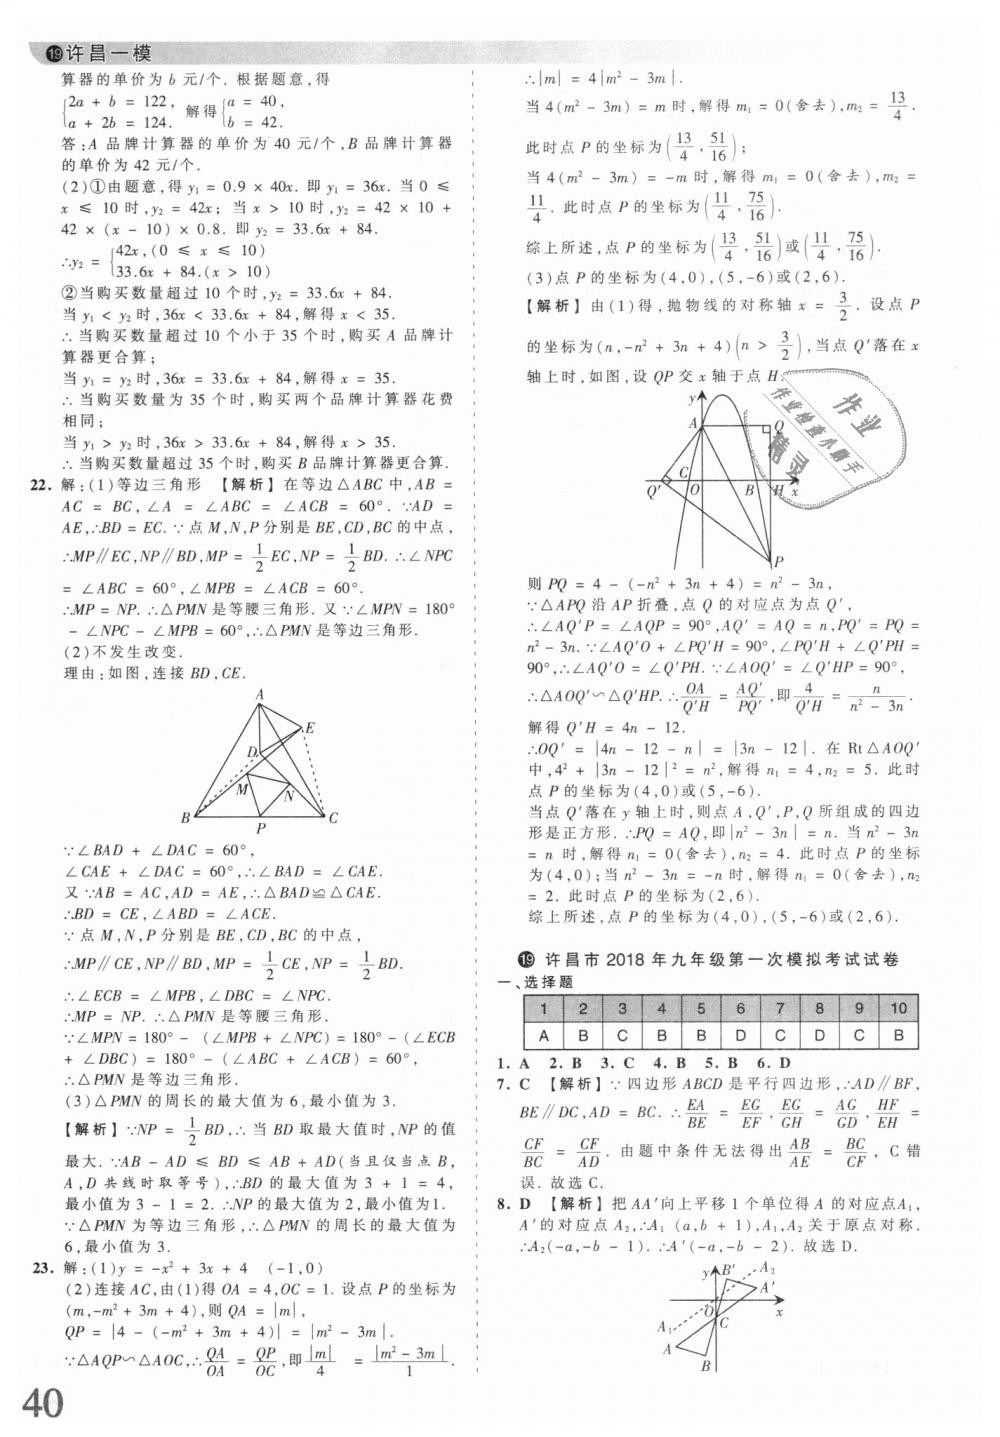 ⑲许昌一模
算器的单价为 b 元/个. 根据题意,得
{2a + b = 122, a + 2b = 124. 解得 {a = 40, b = 42.
答:A 品牌计算器的单价为 40 元/个,B 品牌计算器
的单价为 42 元/个.
(2)①由题意,得 y₁ = 0.9 × 40x. 即 y₁ = 36x. 当 0 ≤
x ≤ 10 时,y₂ = 42x; 当 x > 10 时,y₂ = 42 × 10 +
42 × (x - 10) × 0.8. 即 y₂ = 33.6x + 84.
∴y₂ = {42x,(0 ≤ x ≤ 10) 33.6x + 84.(x > 10)
②当购买数量超过 10 个时,y₂ = 33.6x + 84.
当 y₁ < y₂ 时,36x < 33.6x + 84,解得 x < 35.
∴当购买数量超过 10 个小于 35 个时,购买 A 品牌计
算器更合算;
当 y₁ = y₂ 时,36x = 33.6x + 84,解得 x = 35.
∴当购买数量为 35 个时,购买两个品牌计算器花费
相同;
当 y₁ > y₂ 时,36x > 33.6x + 84,解得 x > 35.
∴当购买数量超过 35 个时,购买 B 品牌计算器更合算.
22. 解:(1)等边三角形 【解析】在等边△ABC 中,AB =
AC = BC,∠A = ∠ABC = ∠ACB = 60°. ∵AD =
AE,∴BD = EC. ∵点 M,N,P 分别是 BE,CD,BC 的中点,
∴MP∥EC,NP∥BD,MP = 1/2 EC,NP = 1/2 BD. ∴∠NPC
= ∠ABC = 60°,∠MPB = ∠ACB = 60°.
∴MP = NP. ∴△PMN 是等腰三角形. 又∵∠MPN = 180°
- ∠NPC - ∠MPB = 60°,∴△PMN 是等边三角形.
(2)不发生改变.
理由:如图,连接 BD,CE.
A
E
D
M
N
B
P
C
∵∠BAD + ∠DAC = 60°,
∠CAE + ∠DAC = 60°,∴∠BAD = ∠CAE.
又∵AB = AC,AD = AE,∴△BAD≌△CAE.
∴BD = CE,∠ABD = ∠ACE.
∵点 M,N,P 分别是 BE,CD,BC 的中点,
∴MP∥CE,NP∥BD,MP = 1/2 CE,NP = 1/2 BD.
∴∠ECB = ∠MPB,∠DBC = ∠NPC.
∴MP = NP. ∴△PMN 是等腰三角形.
∵∠MPN = 180° - (∠MPB + ∠NPC) = 180° - (∠ECB
+ ∠DBC) = 180° - (∠ABC + ∠ACB) = 60°.
∴△PMN 是等边三角形.
(3)△PMN 的周长的最大值为 6,最小值为 3.
【解析】∵NP = 1/2 BD,∴当 BD 取最大值时,NP 的值
最大. ∵AB - AD ≤ BD ≤ AB + AD(当且仅当点 B,
A,D 共线时取等号),∴BD 的最大值为 3 + 1 = 4,
最小值为 3 - 1 = 2. ∴NP 的最大值为 2,最小值为1.
∵△PMN 为等边三角形,∴△PMN 的周长的最大值为
6,最小值为 3.
23. 解:(1)y = -x² + 3x + 4 (-1,0)
(2)连接 AC,由(1)得 OA = 4,OC = 1. 设点 P 的坐标为
(m,-m² + 3m + 4),则 QA = |m|,
QP = |4 - (-m² + 3m + 4)| = |m² - 3m|.
∵△AQP∽△AOC,∴QA/OA = QP/OC,即 |m|/4 = |m² - 3m|/1.
40
∴|m| = 4|m² - 3m|.
当 4(m² - 3m) = m 时,解得 m₁ = 0(舍去),m₂ = 13/4.
此时点 P 的坐标为(13/4,51/16);
当 4(m² - 3m) = -m 时,解得 m₁ = 0(舍去),m₂ =
11/4. 此时点 P 的坐标为(11/4,75/16).
综上所述,点 P 的坐标为(13/4,51/16)或(11/4,75/16).
(3)点 P 的坐标为(4,0),(5,-6)或(2,6).
【解析】由(1)得,抛物线的对称轴 x = 3/2. 设点 P
的坐标为(n,-n² + 3n + 4)(n > 3/2),当点 Q′落在 x
轴上时,如图,设 QP 交 x 轴于点 H.
y
A
Q
C
Q′
O
B
H
x
P
作业
作业检查小助手
精灵
则 PQ = 4 - (-n² + 3n + 4) = n² - 3n,
∵△APQ 沿 AP 折叠,点 Q 的对应点为点 Q′,
∴∠AQ′P = ∠AQP = 90°,AQ′ = AQ = n,PQ′ = PQ =
n² - 3n. ∵∠AQ′O + ∠PQ′H = 90°,∠PQ′H + ∠Q′PH =
90°,∴∠AQ′O = ∠Q′PH. ∵∠AOQ′ = ∠Q′HP = 90°,
∴△AOQ′∽△Q′HP. ∴OA/Q′H = AQ′/PQ′,即 4/Q′H = n/(n² - 3n).
解得 Q′H = 4n - 12.
∴OQ′ = |4n - 12 - n| = |3n - 12|. 在 Rt△AOQ′
中,4² + |3n - 12|² = n²,解得 n₁ = 4,n₂ = 5. 此时
点 P 的坐标为(4,0)或(5,-6).
当点 Q′落在 y 轴上时,则点 A,Q′,P,Q 所组成的四边
形是正方形. ∴PQ = AQ,即|n² - 3n| = n. 当 n² - 3n
= n 时,解得 n₁ = 0(舍去),n₂ = 4. 此时点 P 的坐标
为(4,0);当 n² - 3n = -n 时,解得 n₁ = 0(舍去),n₂
= 2. 此时点 P 的坐标为(2,6).
综上所述,点 P 的坐标为(4,0),(5,-6)或(2,6).
⑲ 许昌市 2018 年九年级第一次模拟考试试卷
一、选择题
1 2 3 4 5 6 7 8 9 10
A B C B B D C D C B
1. A 2. B 3. C 4. B 5. B 6. D
7. C 【解析】∵四边形 ABCD 是平行四边形,∴AD∥BF,
BE∥DC,AD = BC. ∴EA/BE = EG/EF,EG/GH = AG/GD,HF/EH =
CF/BC = CF/AD. 由题中条件无法得出 AB/AE = BC/CF,C 错
误. 故选 C.
8. D 【解析】把 AA′向上平移 1 个单位得 A 的对应点A₁,
A′的对应点 A₂,∴A₁ (a,b + 1),A₁,A₂ 关于原点对称.
∴A₂(-a,-b - 1). ∴A′(-a,-b - 2). 故选 D.
y
B′
A₂
A′
O
x
C
A₁
A
B